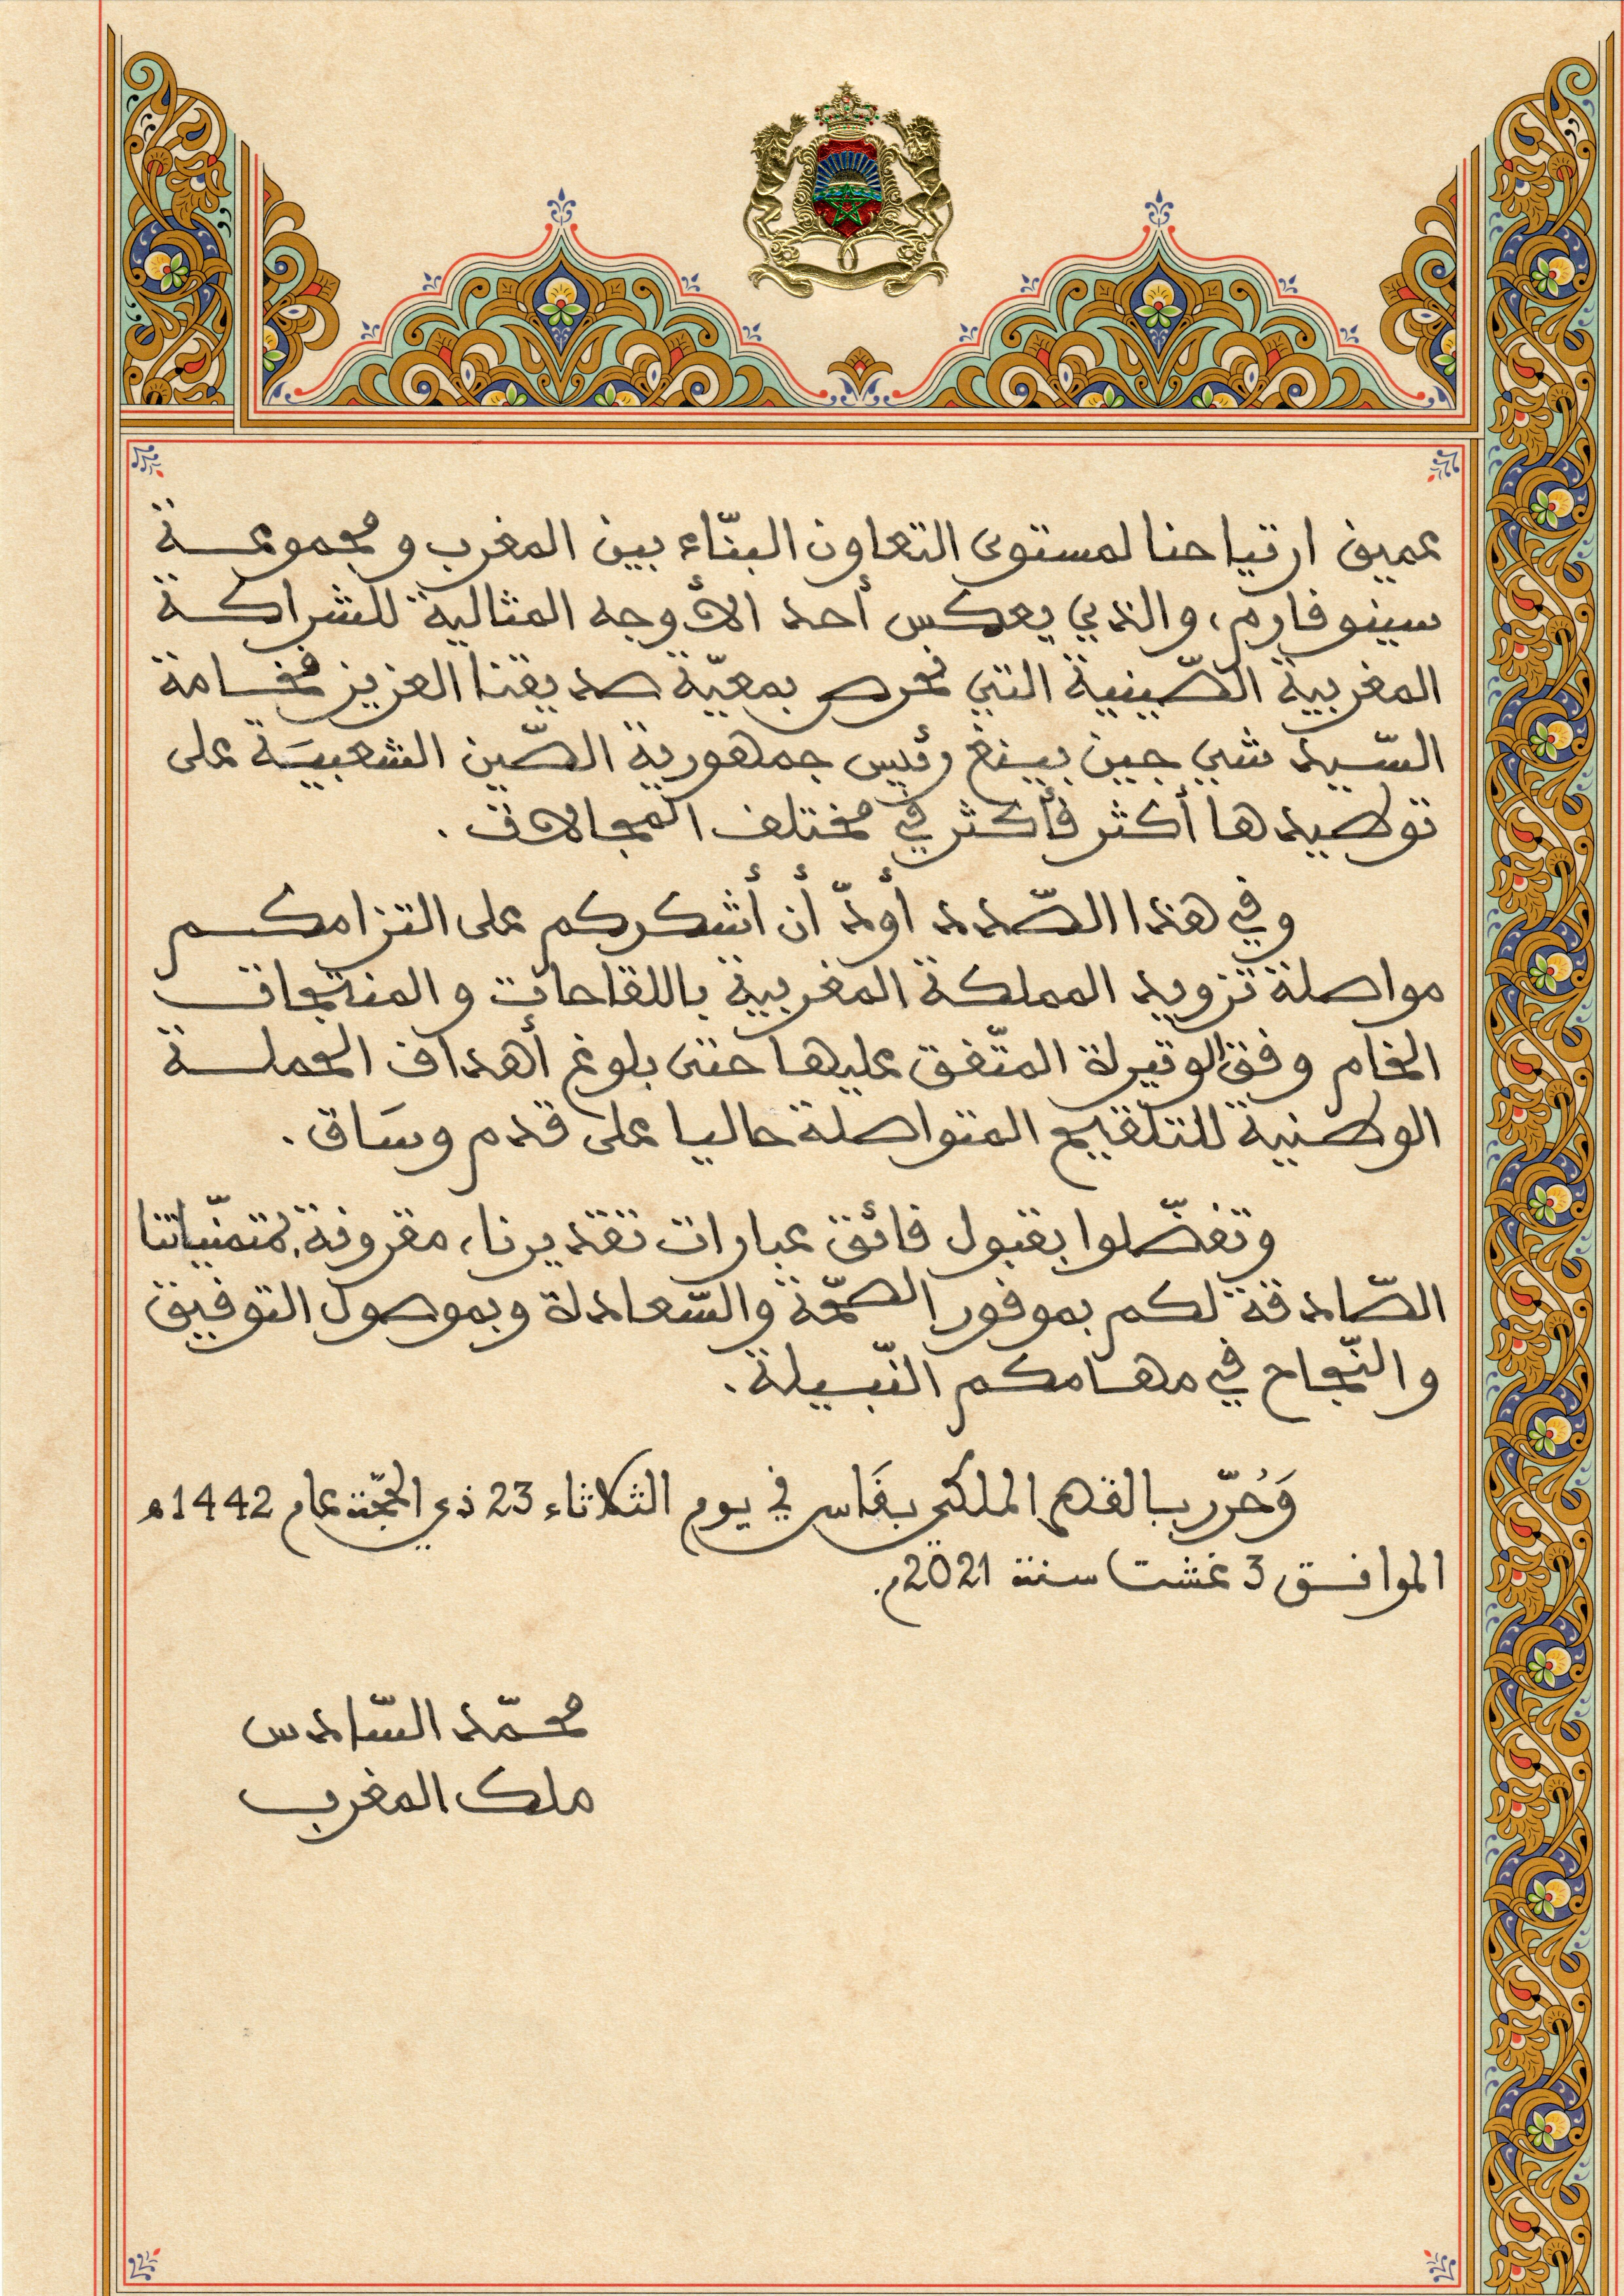 عميق ارتياحنا لمستوى التعاون البنّاء بين المغرب ومجموعة
سينوفارم، والذي يعكس أحد الأوجه المثالية للشراكة
المغربية الصّينية التي نحرص بمعيّة صديقنا العزيز فخامة
السّيد شي جين بينغ رئيس جمهورية الصّين الشعبيَة على
توطيدها أكثر فأكثر في مختلف المجالات.
وفي هذا الصّدد أودّ أن أشكركم على التزامكم
مواصلة تزويد المملكة المغربية باللقاحات والمنتجات
الخام وفق الوتيرة المتّفق عليها حتى بلوغ أهداف الحملة
الوطنية للتلقيح المتواصلة حاليا على قدم وسَاق.
وتفضّلوا بقبول فائق عبارات تقديرنا، مقرونة بمتمنّياتنا
الصّادقة لكم بموفور الصحّة والسّعادة وبموصول التوفيق
والنّجاح في مهامكم النّبيلة.
وَحُرّر بالقصر الملكي بفَاس في يوم الثلاثاء 23 ذي الحجّة عام 1442ه
الموافق 3 غشت سنة 2021م.
محمّد السّادس
ملك المغرب